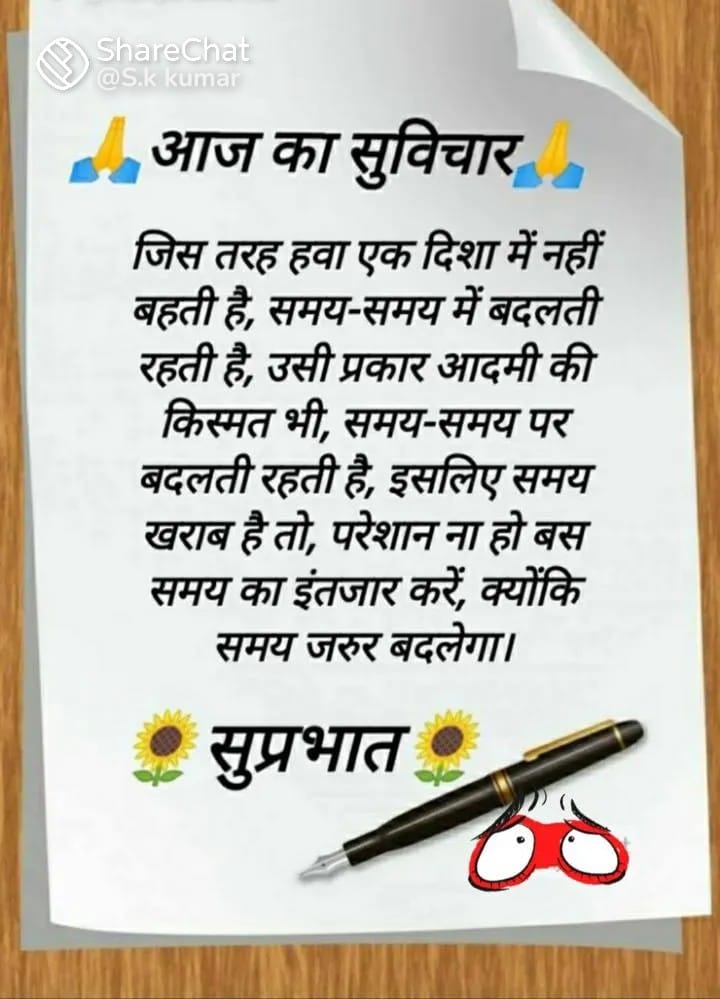 ShareChat
@S.k kumar
🙏आज का सुविचार🙏
जिस तरह हवा एक दिशा में नहीं
बहती है, समय-समय में बदलती
रहती है, उसी प्रकार आदमी की
किस्मत भी, समय-समय पर
बदलती रहती है, इसलिए समय
खराब है तो, परेशान ना हो बस
समय का इंतजार करें, क्योंकि
समय जरुर बदलेगा।
🌻सुप्रभात🌻